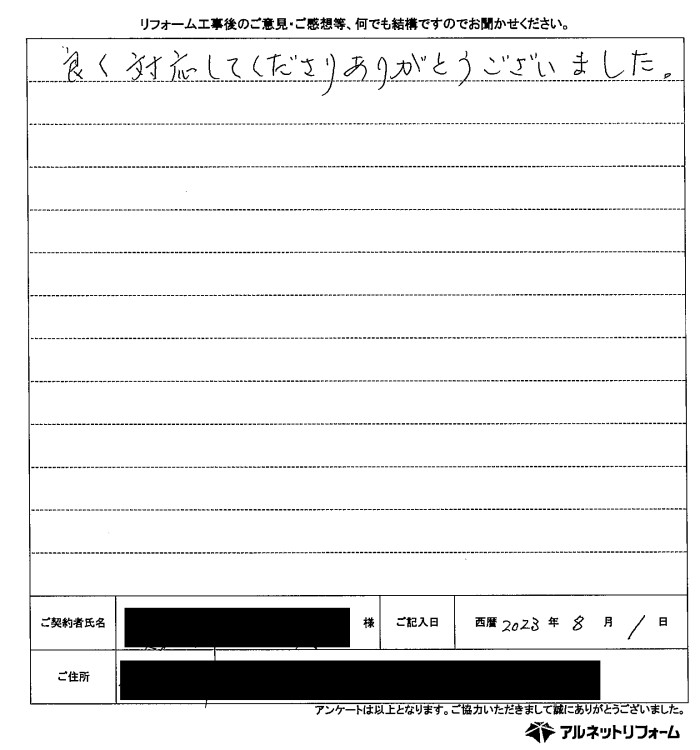 リフォーム工事後のご意見・ご感想等、何でも結構ですのでお聞かせください。
良く対応してくださりありがとうございました。
ご契約者氏名 様 ご記入日 西暦 2023 年 8 月 1 日
ご住所
アンケートは以上となります。ご協力いただきまして誠にありがとうございました。
アルネットリフォーム